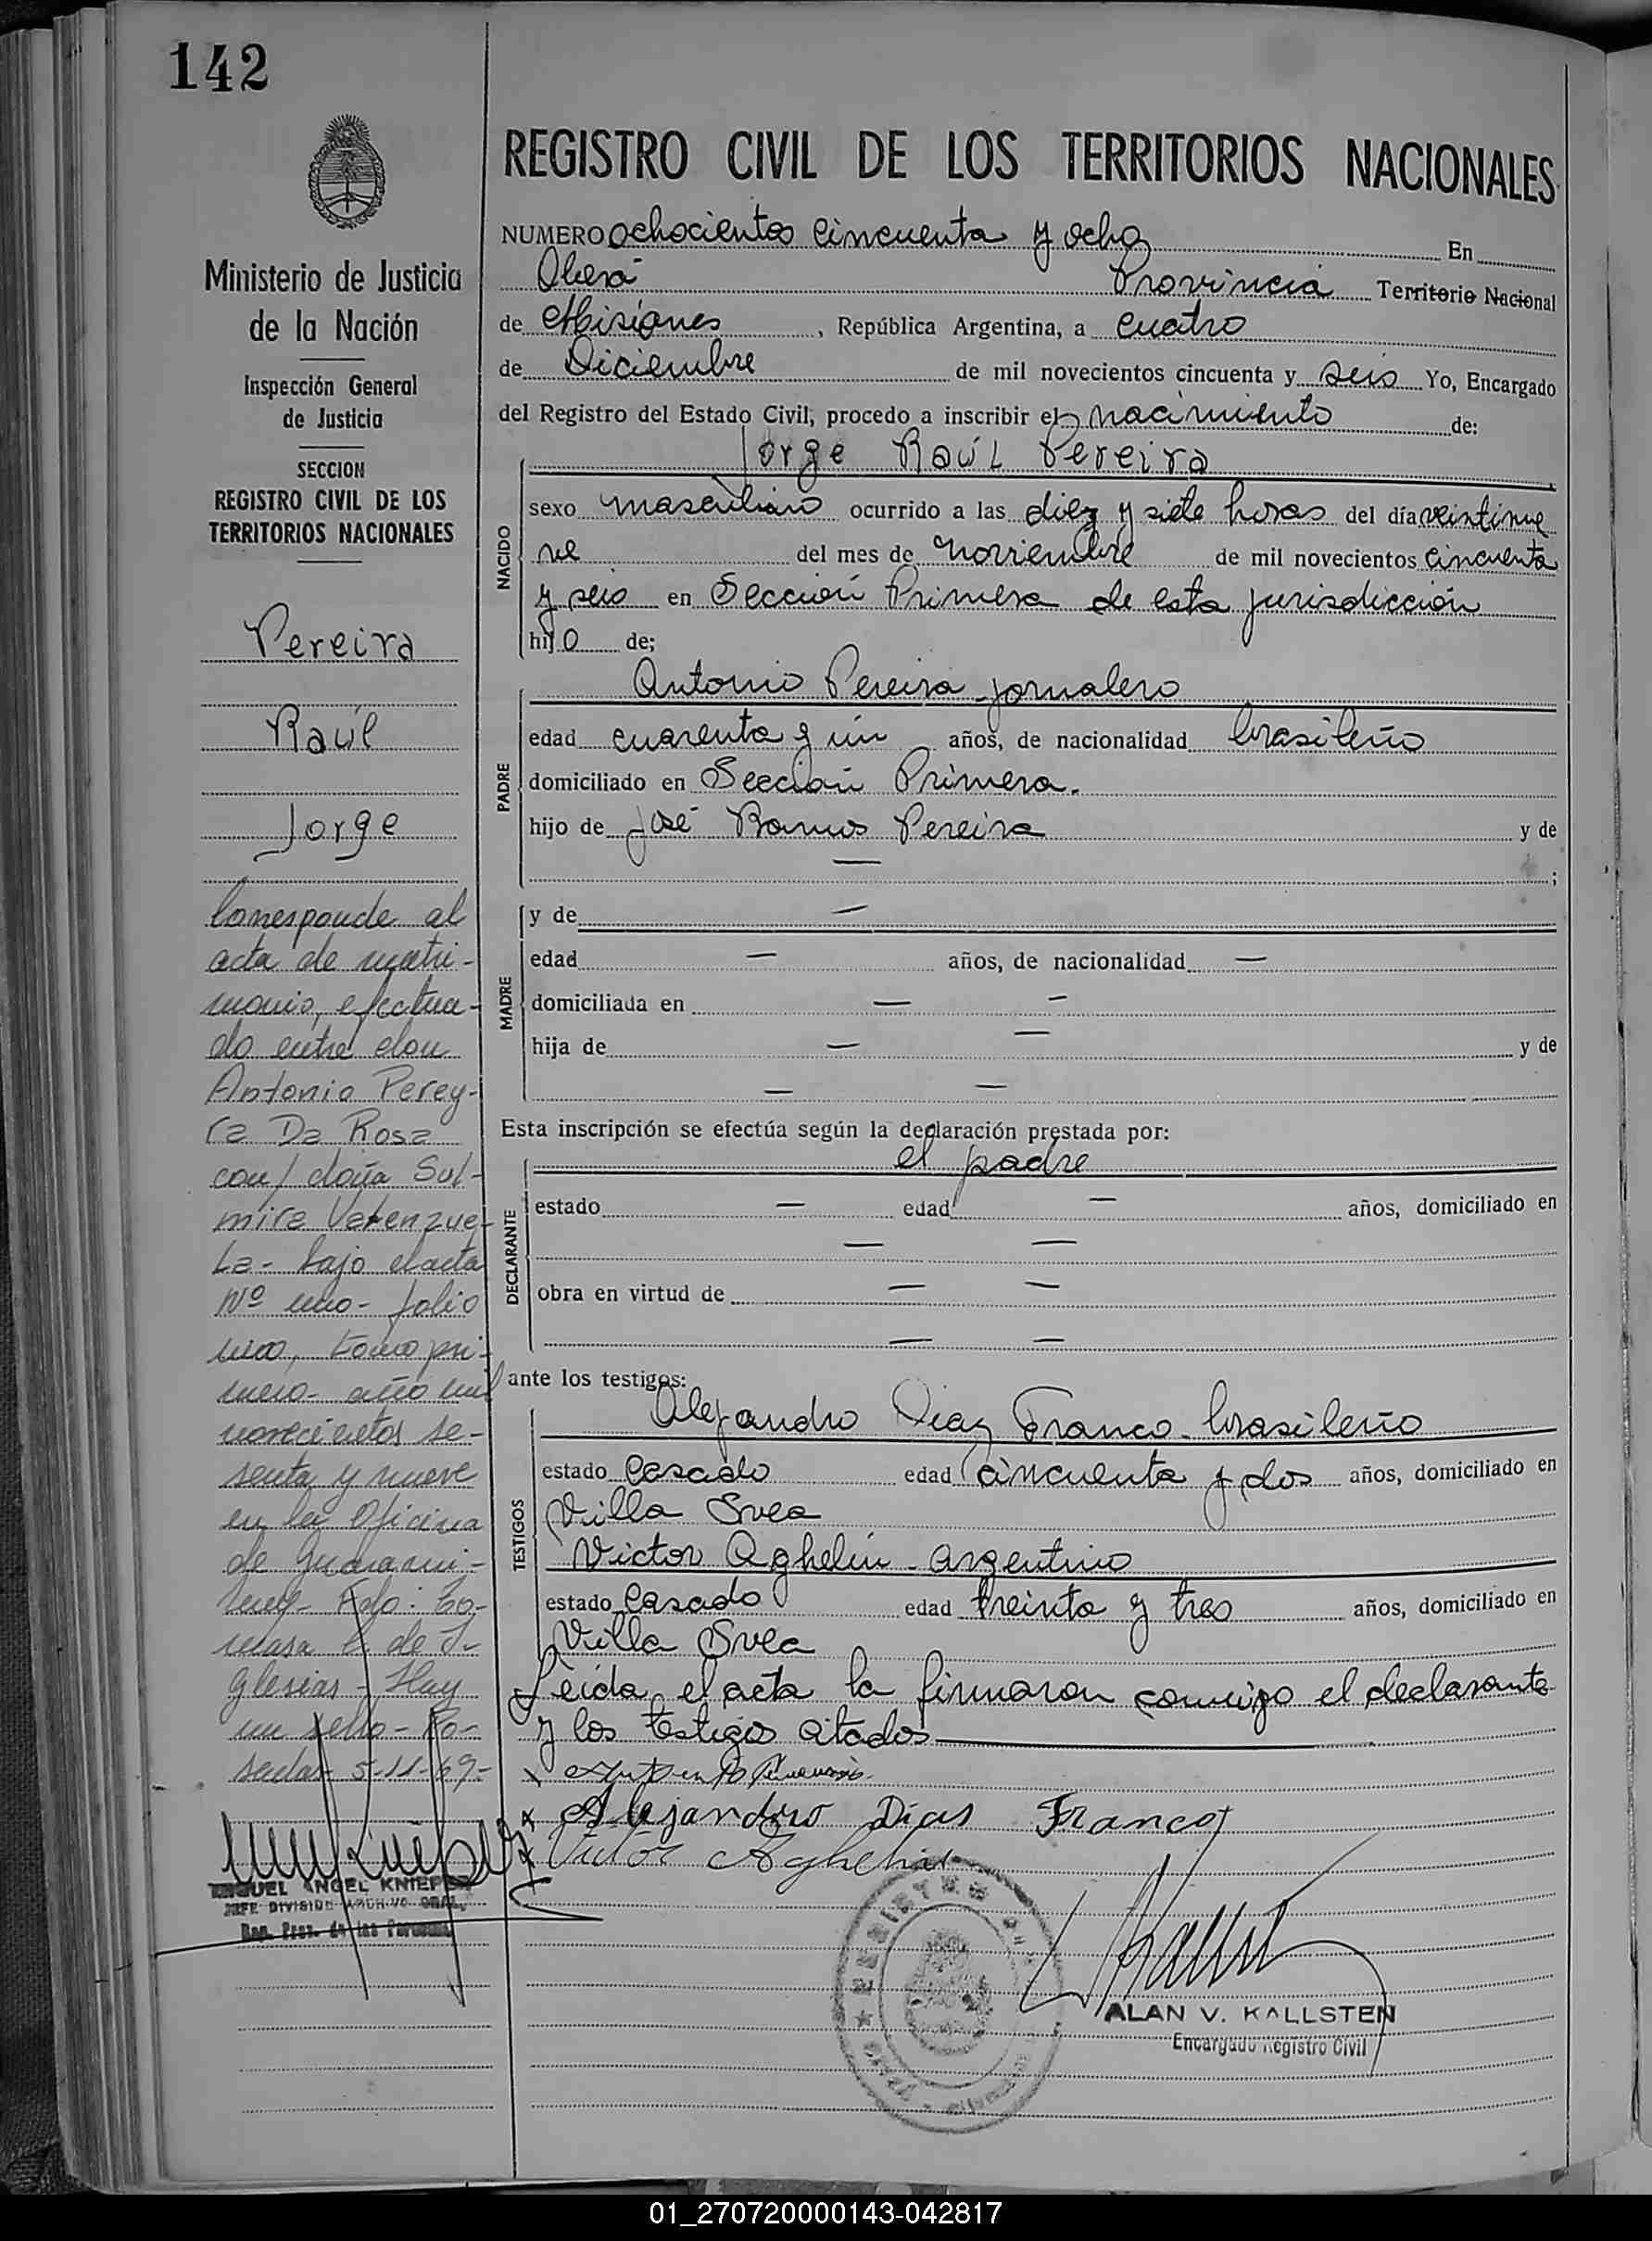 142
REGISTRO CIVIL DE LOS TERRITORIOS NACIONALES
Ministerio de Justicia
de la Nación
Inspección General
de Justicia
SECCION
REGISTRO CIVIL DE LOS
TERRITORIOS NACIONALES
Pereira
Raúl
Jorge
Corresponde al
acta de matri-
monio, efectua-
do entre don
Antonio Perey-
ra Da Rosa
con/ doña Sul-
mira Valenzue-
la - bajo el acta
Nº uno - folio
uno, tomo pri-
mero - año mil
novecientos se-
senta y nueve
en la Oficina
de Guarani -
Fdo: To-
masa de I-
glesias - Hay
un sello - Po-
sadas 5-11-69 -
MIGUEL ANGEL KNIEPER
JEFE DIVISION ARCHIVO GRAL.
Reg. Prov. de las Personas
NUMERO Ochocientos cincuenta y ocho En
Oberá Provincia Territorio Nacional
de Misiones, República Argentina, a cuatro
de Diciembre de mil novecientos cincuenta y seis Yo, Encargado
del Registro del Estado Civil, procedo a inscribir el nacimiento de:
Jorge Raúl Pereira
NACIDO
sexo masculino ocurrido a las diez y siete horas del día veintinue
ve del mes de noviembre de mil novecientos cincuenta
y seis en Sección Primera de esta jurisdicción
hijo de;
PADRE
Antonio Pereira jornalero
edad cuarenta y ún años, de nacionalidad brasileño
domiciliado en Sección Primera.
hijo de José Ramos Pereira y de
— ;
MADRE
y de —
edad — años, de nacionalidad —
domiciliada en — —
hija de — — y de
— —
Esta inscripción se efectúa según la declaración prestada por:
DECLARANTE
el padre
estado — edad — años, domiciliado en
— —
obra en virtud de — —
— —
ante los testigos:
TESTIGOS
Alejandro Diaz Franco - brasileño
estado casado edad cincuenta y dos años, domiciliado en
Villa Svea
Victor Aghelin - argentino
estado casado edad treinta y tres años, domiciliado en
Villa Svea
Leída el acta la firmaron conmigo el declarante
y los testigos citados
x Alejandro Dias Franco
x Victor Aghelin
REGISTRO
ALAN V. KALLSTEN
Encargado Registro Civil
01_270720000143-042817